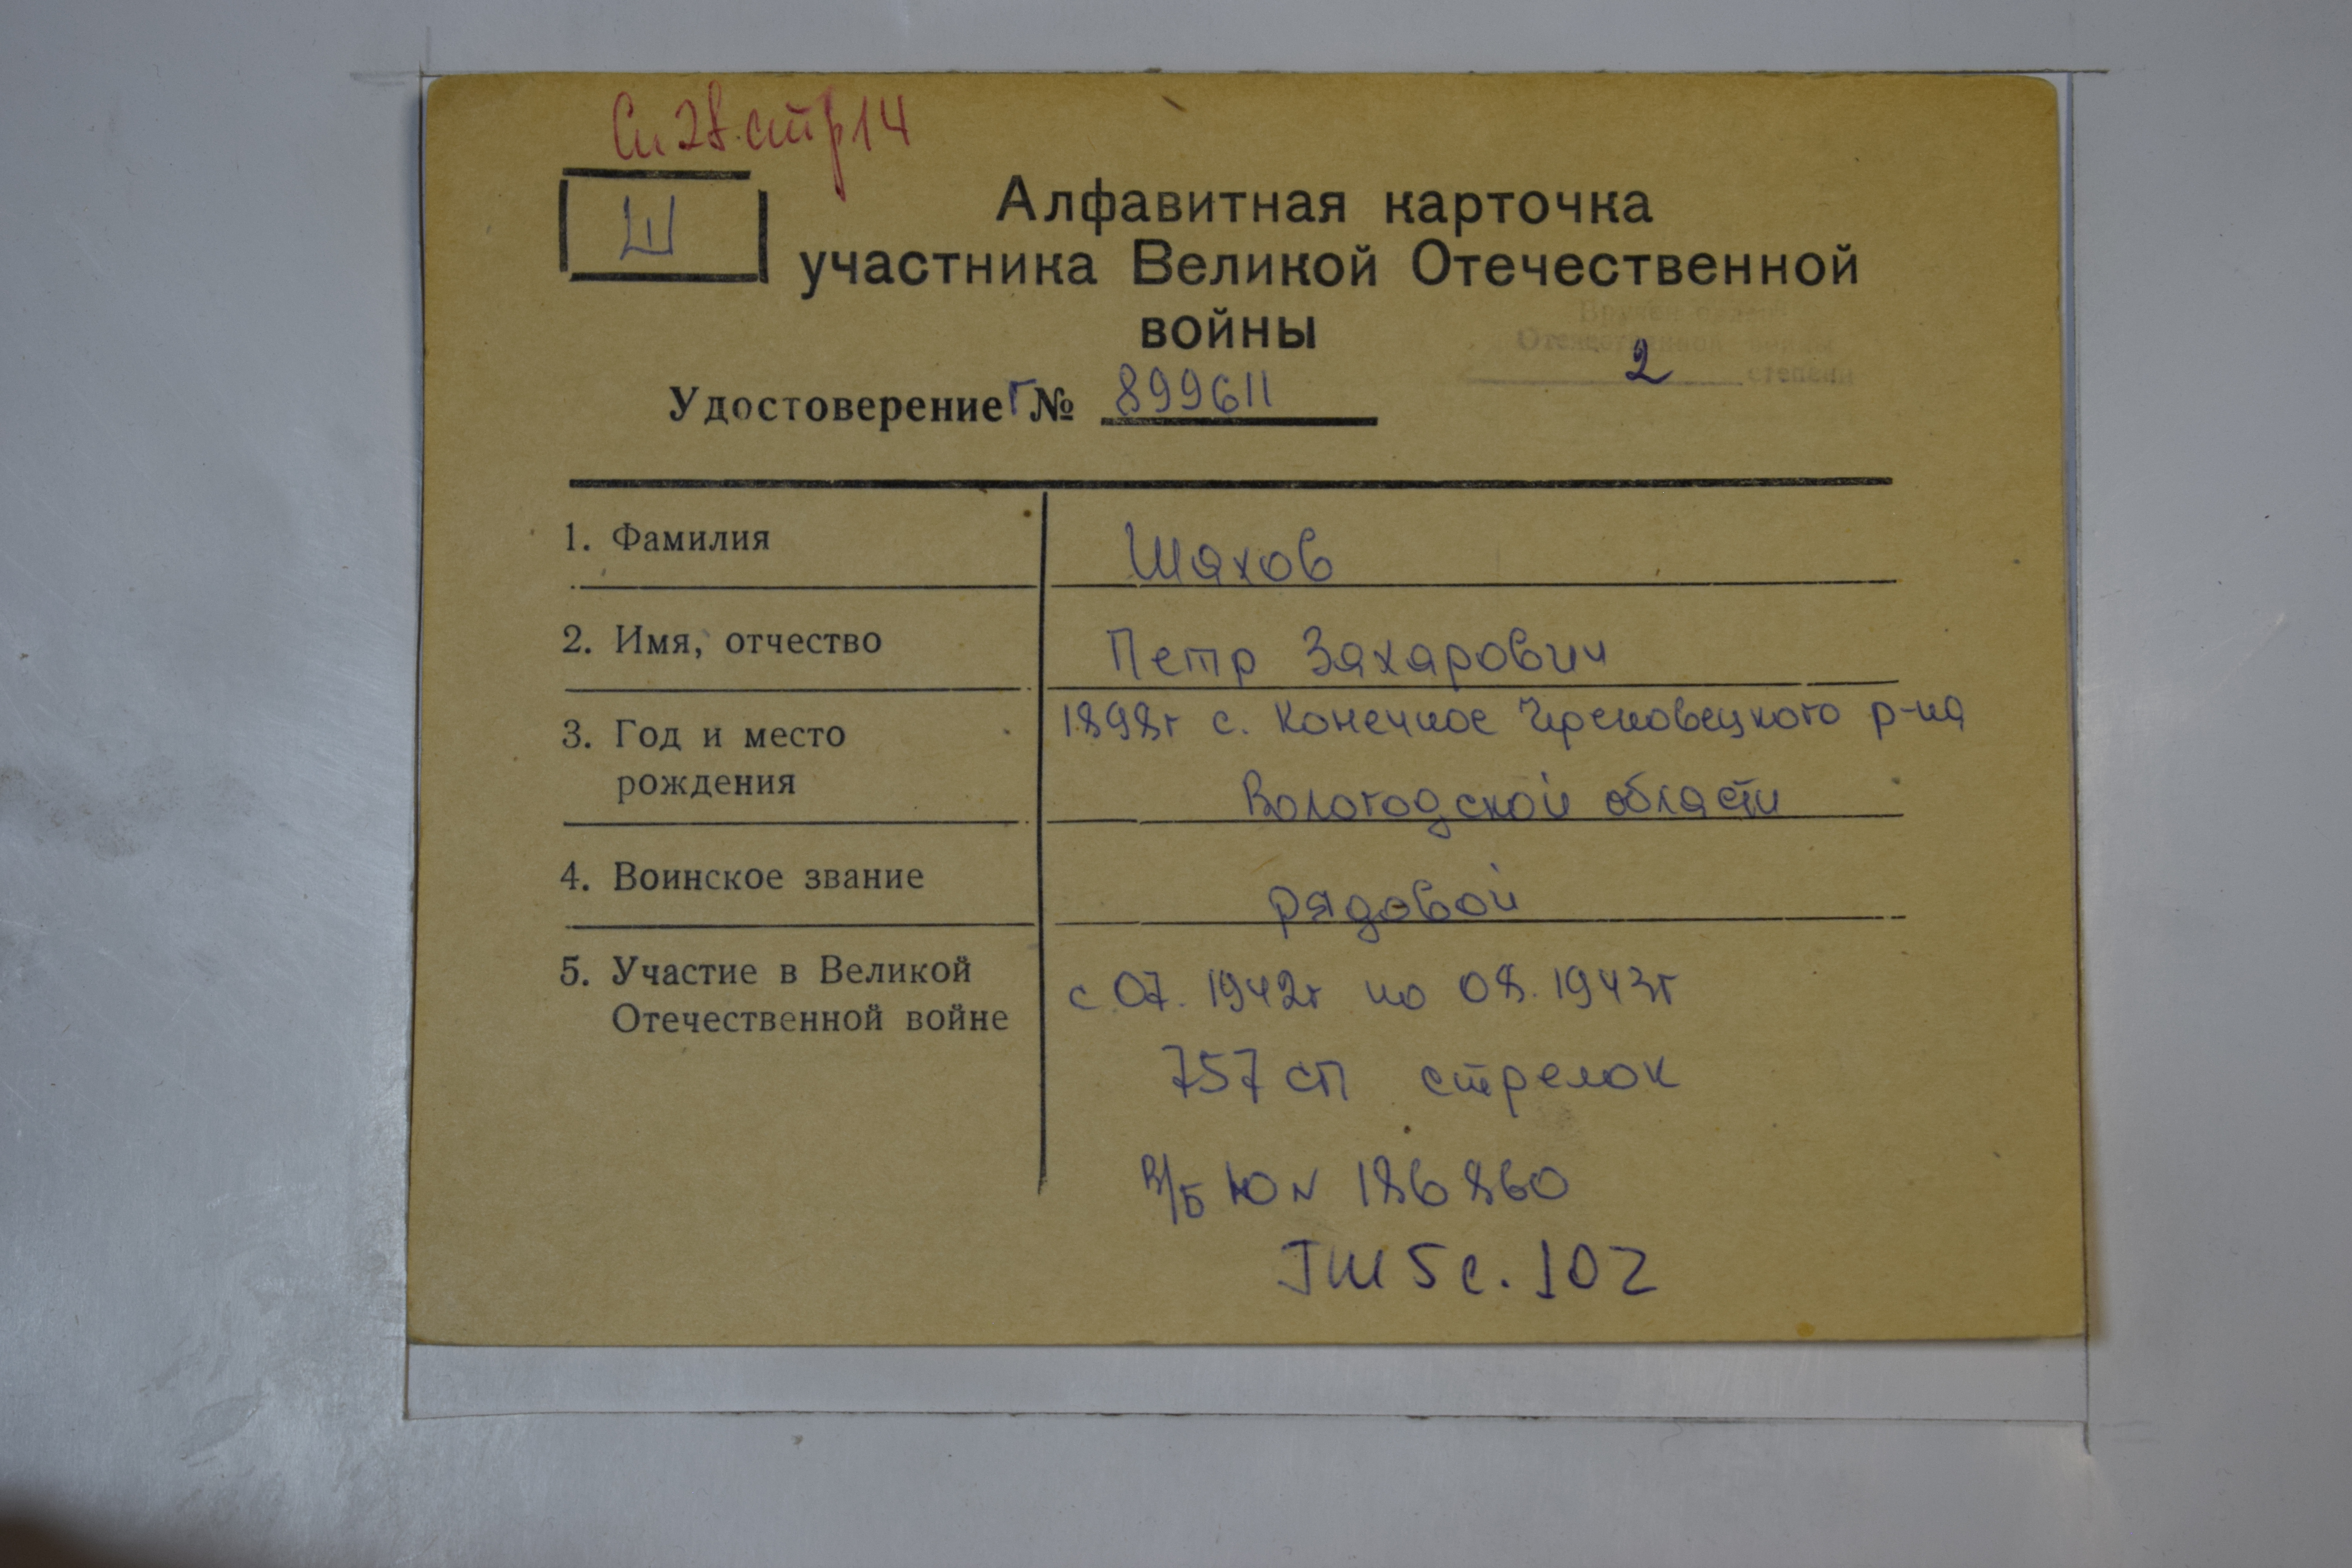 Сп 28. стр 14
Ш
Алфавитная карточка
участника Великой Отечественной
войны
Вручен орден
Отечественной войны
2 степени
Удостоверение Г № 899611
1. Фамилия
Шахов
2. Имя, отчество
Петр Захарович
3. Год и место
рождения
1898г с. Конечное р-на
Вологодской области
4. Воинское звание
рядовой
5. Участие в Великой
Отечественной войне
с 07. 1942г по 08. 1943г
757 сп стрелок
В/Б Ю N 186860
ТШ 5 с. 102